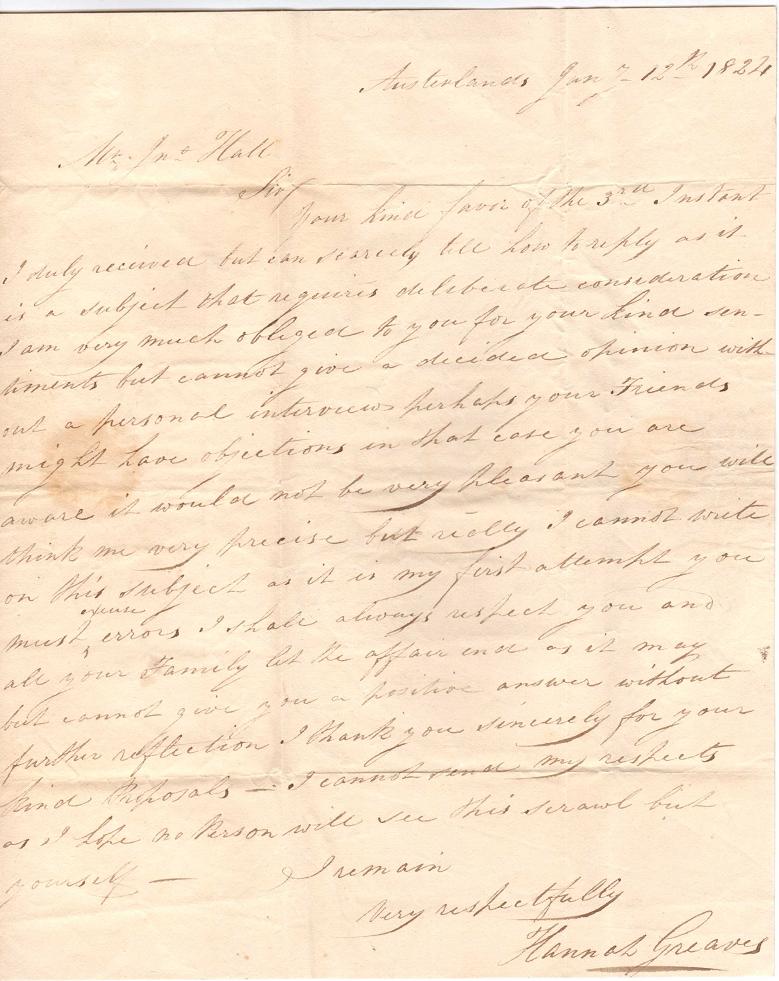 Austerlands Jany 12th 1824
Mr. Jno Hall
Sir/
Your kind favor of the 3rd Instant
I duly received but can scarcely tell how to reply as it
is a subject that requires deliberate consideration
I am very much obliged to you for your kind sen-
timents but cannot give a decided opinion with-
out a personal interview perhaps your Friends
might have objections in that case you are
aware it would not be very pleasant you will
think me very precise but really I cannot write
on this subject as it is my first attempt you
excuse
must errors I shall always respect you and
all your Family let the affair end as it may
but cannot give you a positive answer without
further reflection I thank you sincerely for your
kind Proposals — I cannot send my respects
as I hope no Person will see this scrawl but
yourself —
I remain
Very respectfully
Hannah Greaves